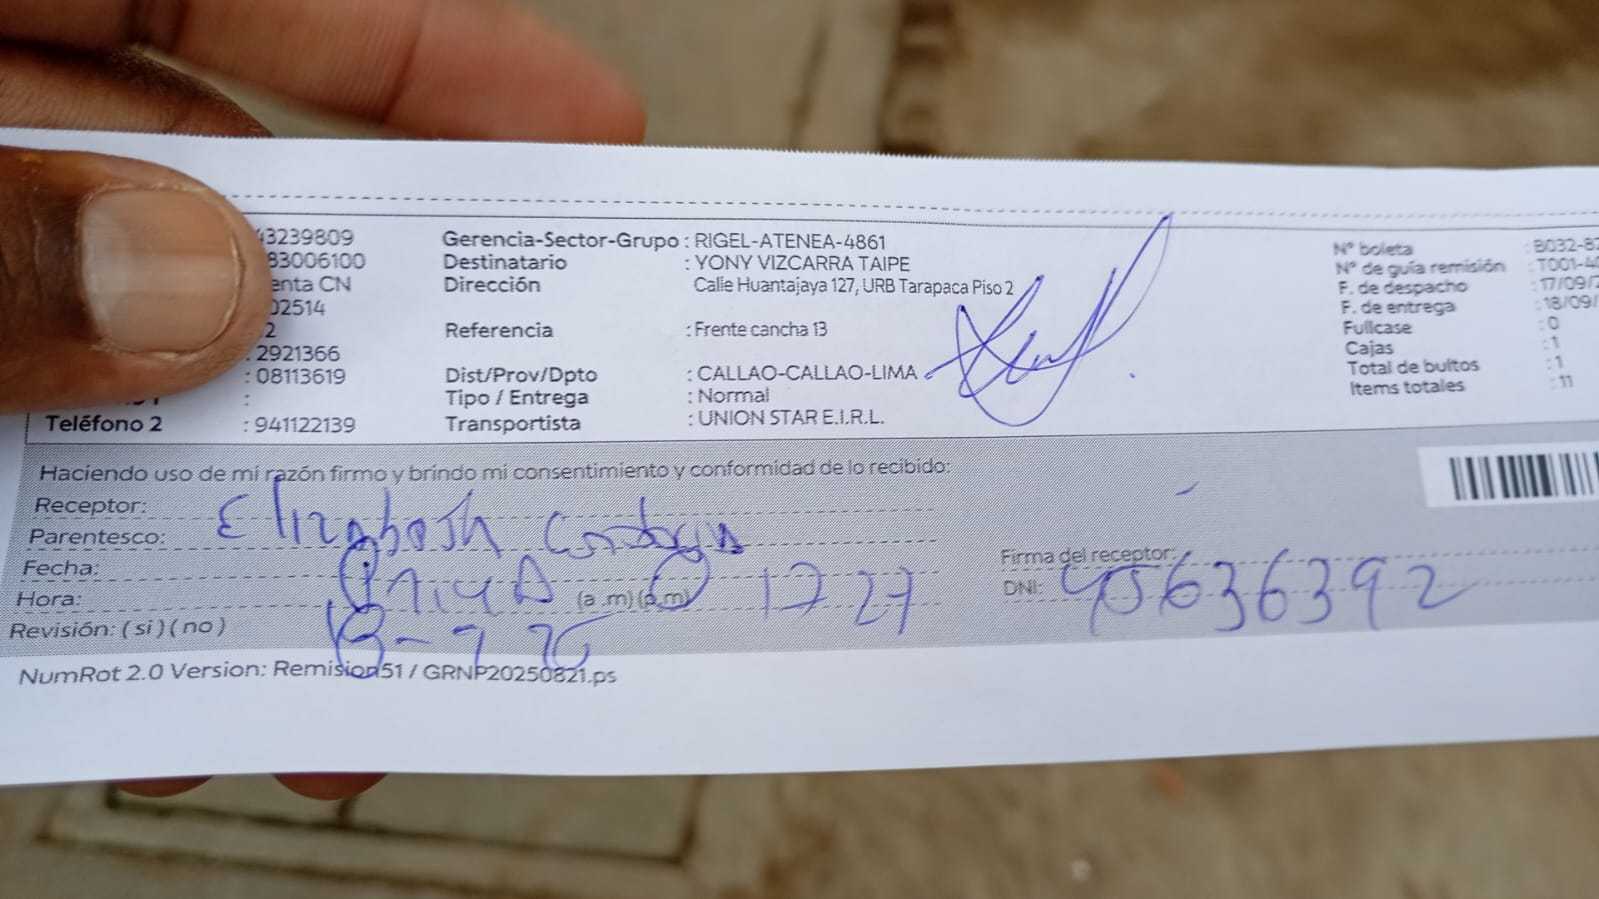 43239809
83006100
enta CN
02514
2
: 2921366
: 08113619
:
Teléfono 2 : 941122139
Gerencia-Sector-Grupo : RIGEL-ATENEA-4861
Destinatario : YONY VIZCARRA TAIPE
Dirección Calle Huantajaya 127, URB Tarapaca Piso 2
Referencia : Frente cancha 13
Dist/Prov/Dpto : CALLAO-CALLAO-LIMA
Tipo / Entrega : Normal
Transportista : UNION STAR E.I.R.L.
Nº boleta : B032-82
Nº de guía remisión : T001-40
F. de despacho : 17/09/2
F. de entrega : 18/09/
Fullcase : 0
Cajas : 1
Total de bultos : 1
Items totales : 11
Haciendo uso de mi razón firmo y brindo mi consentimiento y conformidad de lo recibido:
Receptor: Elizabeth
Parentesco:
Fecha:
Hora: (a .m) (p.m) 17 27
Revisión: ( si ) ( no )
Firma del receptor:
DNI: 45636392
NumRot 2.0 Version: Remision51 / GRNP20250821.ps